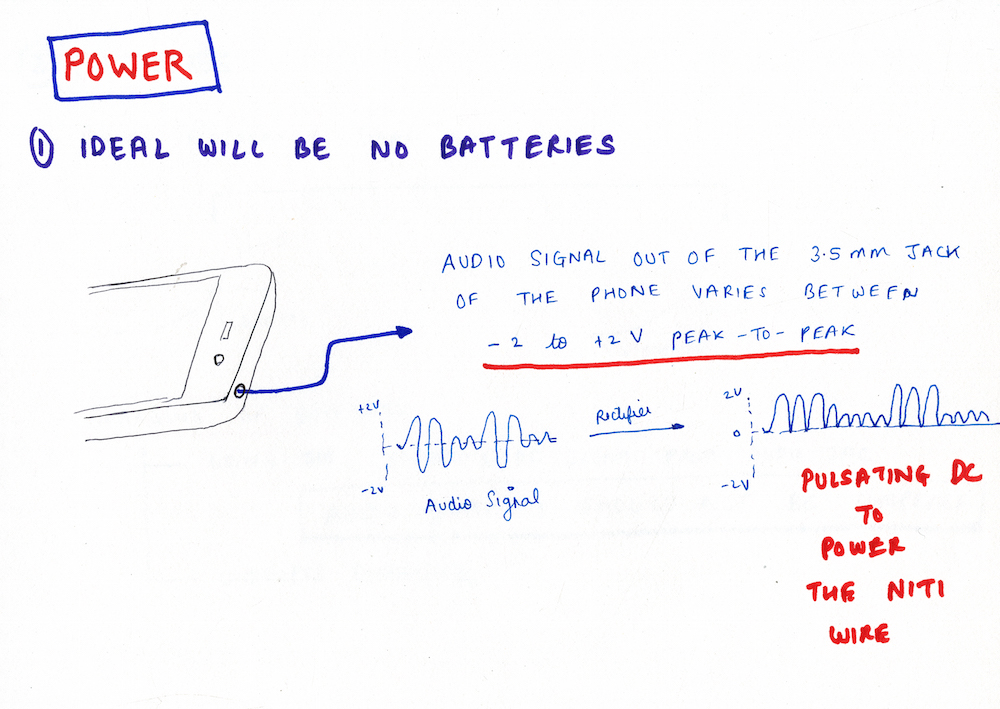 POWER
① IDEAL WILL BE NO BATTERIES
AUDIO SIGNAL OUT OF THE 3.5 mm JACK
OF THE PHONE VARIES BETWEEN
- 2 to +2 V PEAK -TO- PEAK
+2V
-2V
Audio Signal
Rectifier
2V
0
-2V
PULSATING DC
TO
POWER
THE NITI
WIRE